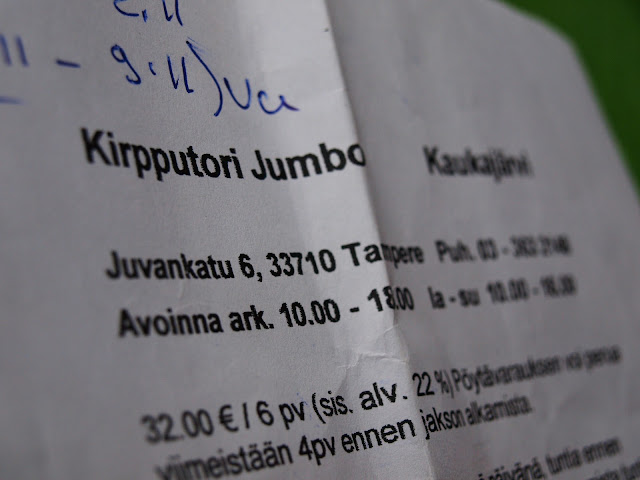 11 - 9.11) Va
Kirpputori Jumbo Kaukajärvi
Juvankatu 6, 33710 Tampere Puh. 03 -
Avoinna ark. 10.00 - 18.00 la - su 10.00 - 16.00
32.00 € / 6 pv (sis. alv. 22 %) Pöytävarauksen voi perua
viimeistään 4pv ennen jakson alkamista.
tuntia ennen